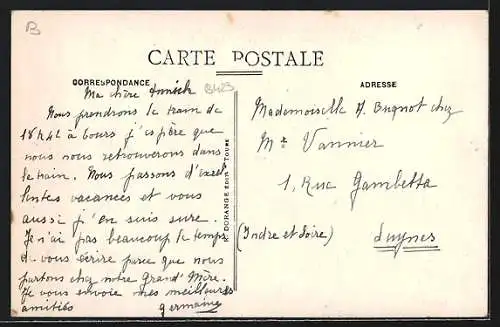 B
CARTE POSTALE
CORRESPONDANCE
ADRESSE
B423
Ma chère Annick
Nous prendrons le train de
18h42 à Tours j'espère que
nous nous retrouverons dans
le train. Nous passons d'excel
lentes vacances et vous
aussi j'en suis sure.
Je n'ai pas beaucoup le temps
de vous écrire parce que nous
partons chez notre Grand'Mère.
Je vous envoie mes meilleures
amitiés Germaine
DORANGE EDIT TOURS
Mademoiselle A. chez
Mr Vannier
1, Rue Gambetta
(Indre et Loire) Luynes